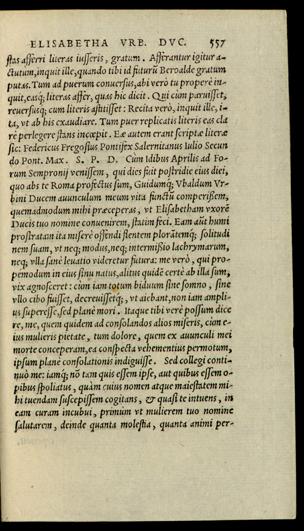 ELISABETHA VRB. DVC. 557
stas afferri literas iusseris, gratum. Afferantur igitur a-
ctutum, inquit ille, quando tibi id futurũ Beroalde gratum
putas. Tum ad puerum conuersus, abi verò tu properè in-
quit, easq́; literas affer, quas hic dicit. Qui cùm paruisset,
reuersusq́; cum literis astitisset: Recita verò, inquit ille, i-
ta, vt ab his exaudiare. Tum puer replicatis literis eas cla
rè perlegere stans incœpit. Eæ autem erant scriptæ literæ
sic; Federicus Fregosius Pontifex Salernitanus Iulio Secun
do Pont. Max. S. P. D. Cùm Idibus Aprilis ad Fo-
rum Sempronij venissem, qui dies fuit postridie eius diei,
quo abs te Roma profectus sum, Guidumq́; Vbaldum Vr-
bini Ducem auunculum meum vita functũ comperissem,
quemadmodum mihi præceperas, vt Elisabetham vxorẽ
Ducis tuo nomine conuenirem, statim feci. Eam aũt humi
prostratam ita miserè offendi flentem plorãtemq́; solitudi
nem suam, vt neq; modus, neq; intermissio lachrymarum,
neq; vlla sanè leuatio videretur futura: me verò, qui pro-
pemodum in eius sinu natus, altus quidẽ certè ab illa sum,
vix agnosceret: cùm iam totum biduum sine somno, sine
vllo cibo fuisset, decreuissetq́;, vt aiebant, non iam ampli-
us superesse, sed planè mori. Itaque tibi verè possum dice
re, me, quem quidem ad consolandos alios miseris, cùm e-
ius mulieris pietate, tum dolore, quem ex auunculi mei
morte conceperam, ea conspecta vehementius permotum,
ipsum planè consolationis indiguisse. Sed collegi conti-
nuò me: iamq́; nõ tam quis essem ipse, aut quibus essem o-
pibus spoliatus, quàm cuius nomen atque maiestatem mi-
hi tuendam suscepissem cogitans, & quasi te intuens, in
eam curam incubui, primùm vt mulierem tuo nomine
salutarem, deinde quanta molestia, quanta animi per-